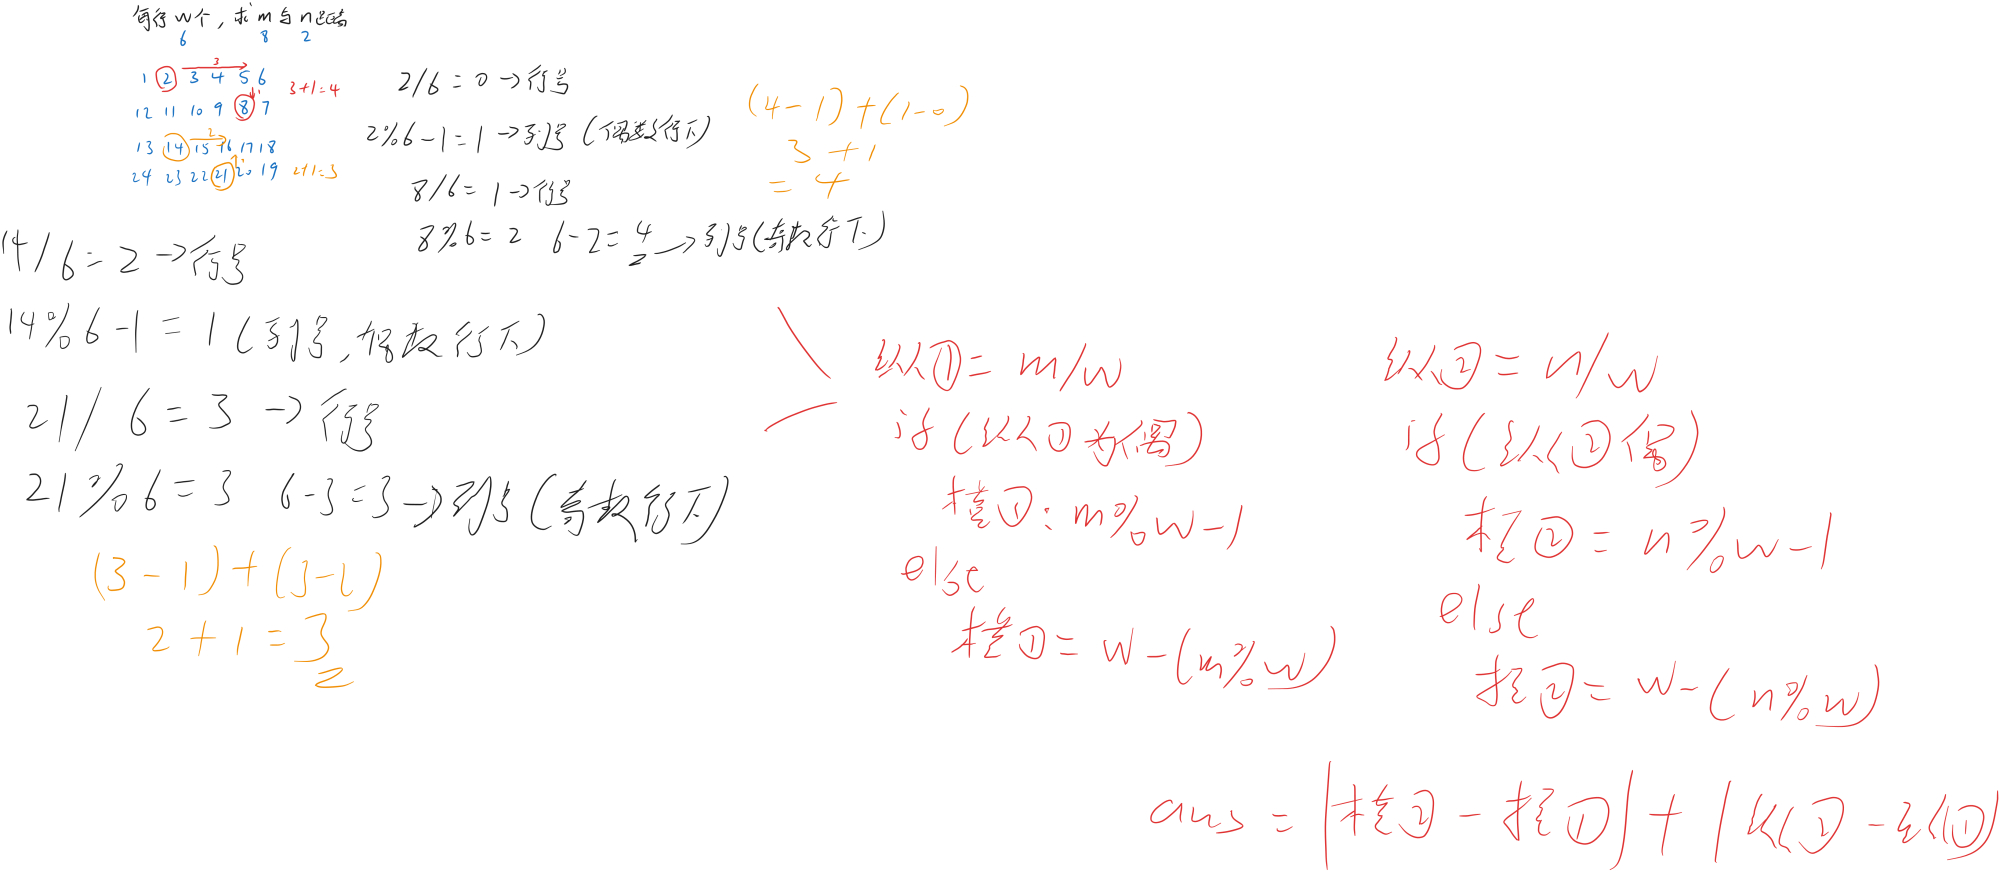 每行w个，求m与n距离
6 8 2
3
1 2 3 4 5 6
3+1=4
12 11 10 9 8 7
2
13 14 15 16 17 18
24 23 22 21 20 19
2+1=3
2/6=0→行号
2%6-1=1→列号（偶数行下）
8/6=1→行号
8%6=2 6-2=4→列号（奇数行下）
(4-1)+(1-0)
3+1
=4
14/6=2→行号
14%6-1=1（列号，偶数行下）
21/6=3→行号
21%6=3 6-3=3→列号（奇数行下）
(3-1)+(3-2)
2+1=3
纵①=m/w
if(纵①为偶)
横①:m%w-1
else
横①=w-(m%w)
纵②=n/w
if(纵②偶)
横②=n%w-1
else
横②=w-(n%w)
ans=|横②-横①|+|纵②-纵①|